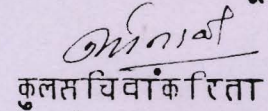 कुलसचिवांकरिता